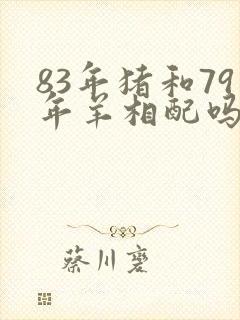 83年猪和79
年羊相配吗
蔡川褒